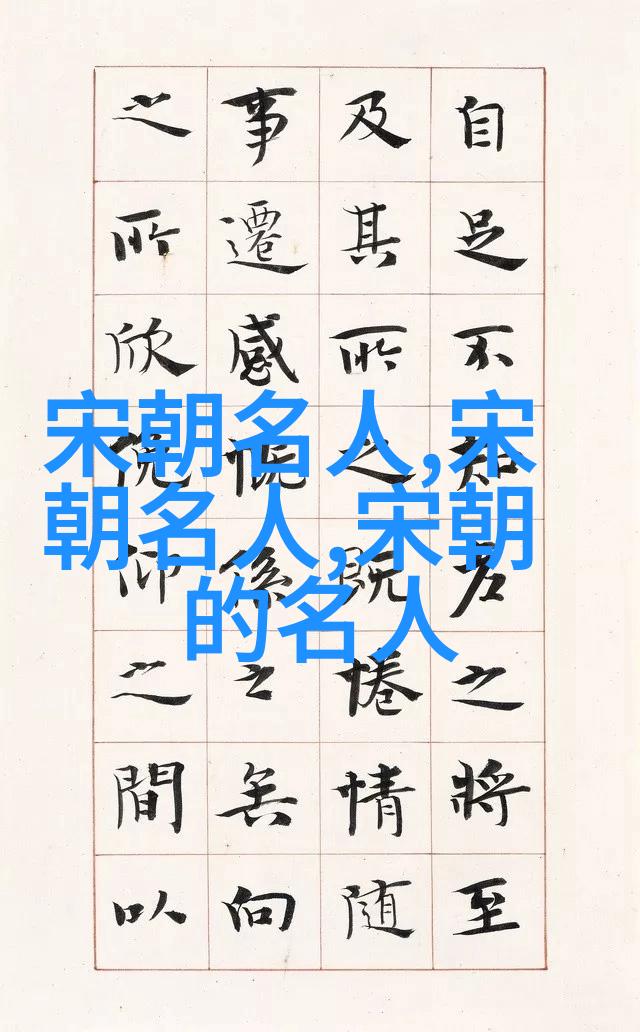 自足不知老之將至
及其所之既惓情隨
事遷感慨係之矣向
之所欣俛仰之間以
宋朝名人,宋
朝名人,宋朝
的名人